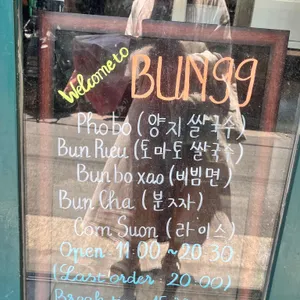 Welcome to
BUN99
Pho bo (양지 쌀국수)
Bun Rieu (토마토 쌀국수)
Bun bo xao (비빔면)
Bun Cha (분짜)
Com Suon (라이스)
Open 11:00~20:30
(Last order: 20:00)